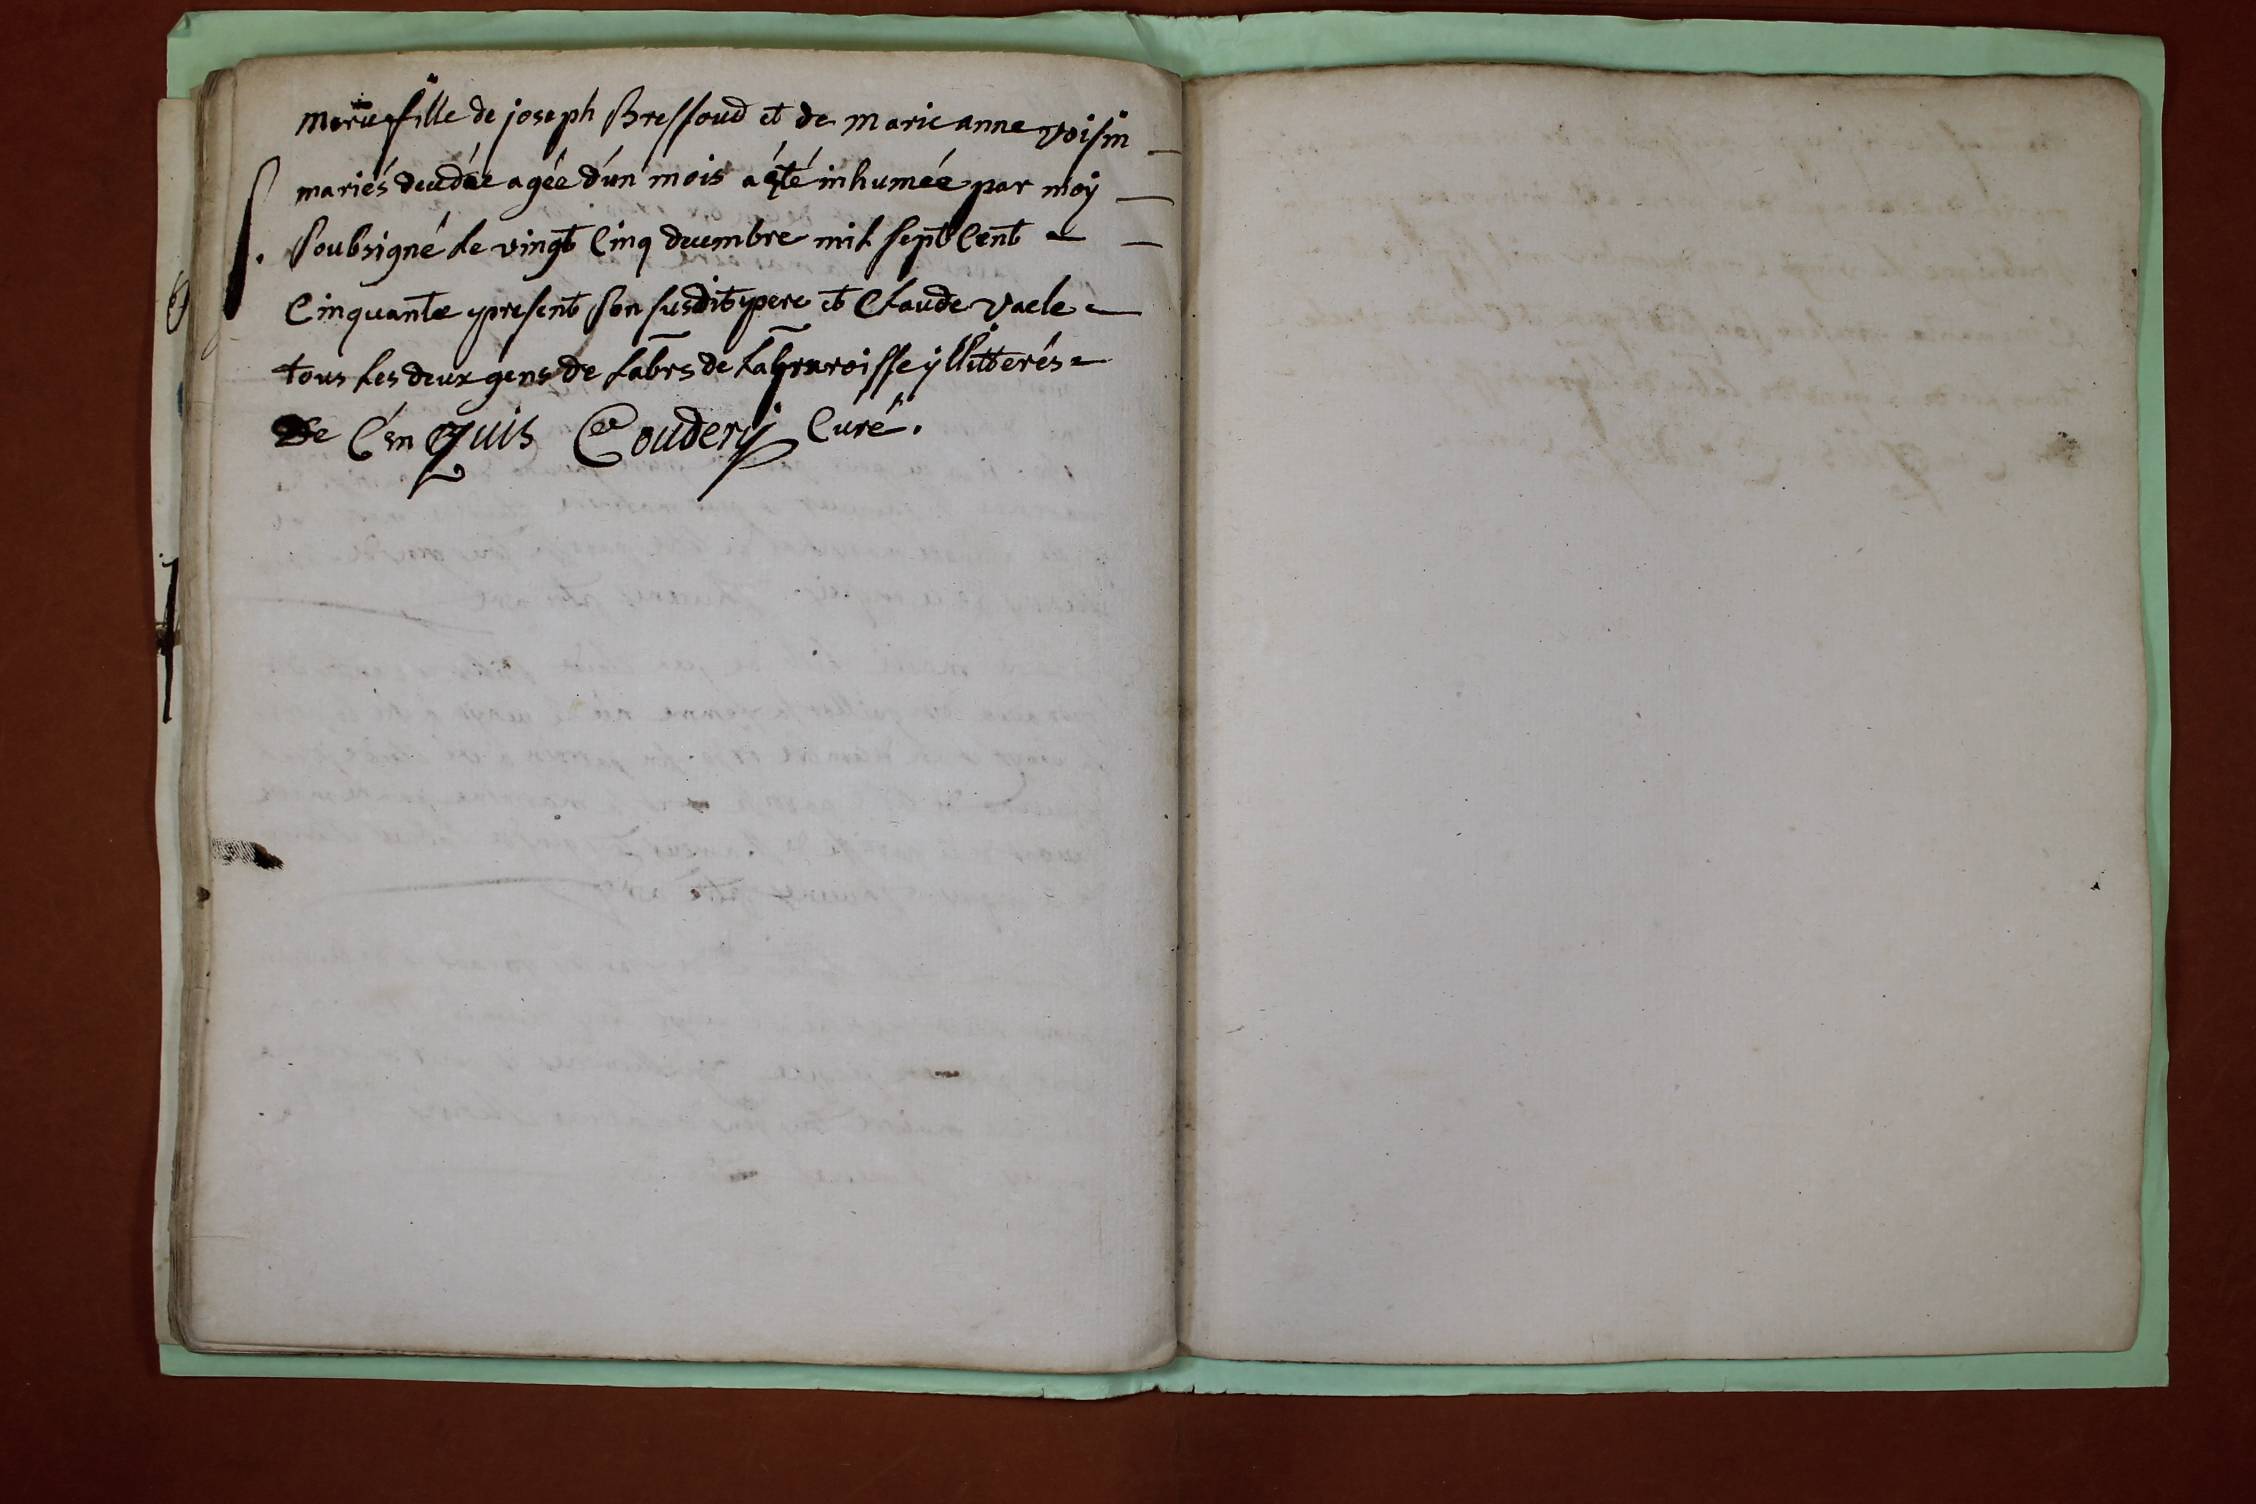 marie fille de joseph Bressoud et de marie anne voisin
mariés decedée agée d'un mois a été inhumée par moÿ
S. soubsigné le vingt Cinq decembre mil sept Cent
Cinquante present son susdit pere et Claude vacle
tous les deux gens de labrs de la paroisse ÿllitterés
De Cenquis Couderÿ Curé.